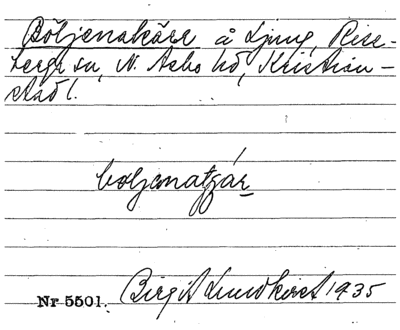 Böljenakärr å Ljung, Rise-
berga sn, N. Åsbo hd, Kristian-
stad l.
Nr 5501. Birgit Lundkvist 1935